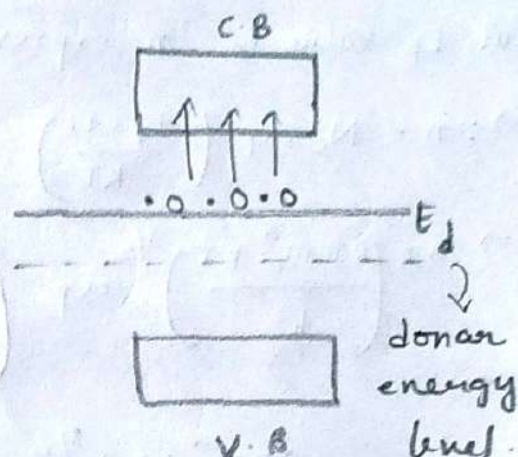 C.B
E_d
donar
energy
level.
V.B